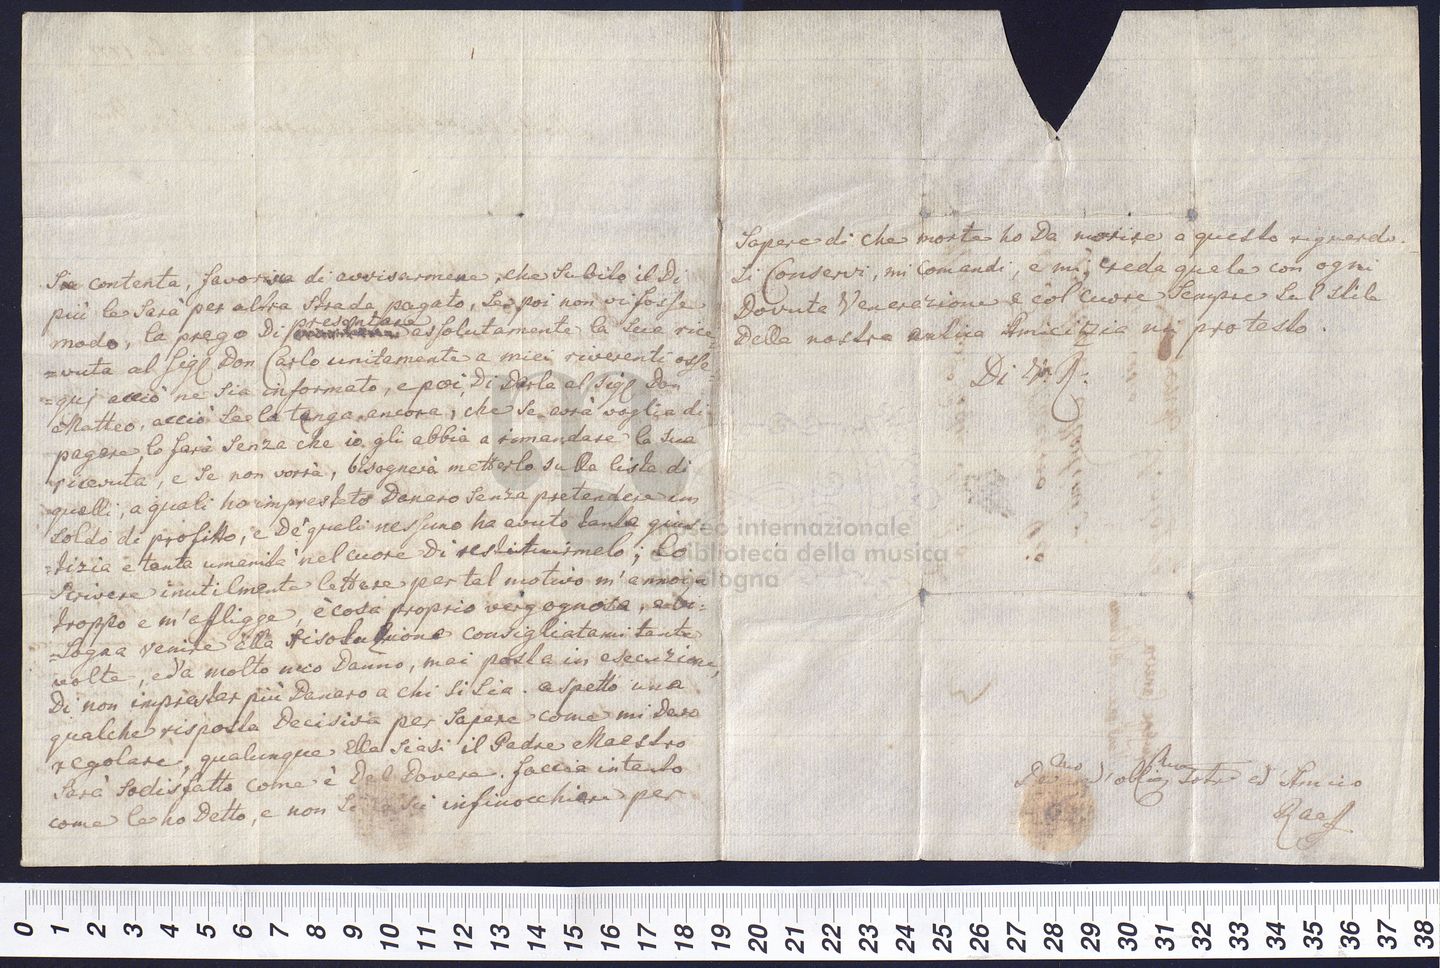 Sia contenta, favorisca di avvisarmene, che subito il di
più le Sarà per altra Strada pagato, Se poi non vi fosse
modo, la prego di presentare assolutamente la Sua rice=
=vuta al Sigr Don Carlo unitamente a miei riverenti osse=
=quj acciò ne Sia informato, e poi di darla al Sigr Don
Matteo, acciò Se la tenga ancora, che Se avrà voglia di
pagare, lo farà Senza che io gli abbia a rimandare la Sua
ricevuta, e Se non vorrà, bisognerà metterlo Sulla lista di
quelli, a quali ho imprestato Danaro Senza pretendere un
Soldo di profitto, e de' quali nessuno ha avuto tanta gius=
=tizia e tanta umanità nel cuore di restituirmelo; Lo
Scrivere inutilmente lettere per tal motivo m'annoja
troppo e m'affligge, è cosa proprio vergognosa, e bi=
=Sogna venire alla risoluzione consigliatami tante
volte, ed a molto mio Danno, mai posta in esecuzione,
Di non imprestar più Danaro a chi Si Sia. aspetto una
qualche risposta Decisiva per Sapere come mi devo
regolare, qualunque Ella Siasi il Padre Maestro
Sarà Sodisfatto come è Del Dovere. faccia intanto
come le ho Detto, e non Si infinocchiare per
Sapere di che morte ho Da morire a questo riguardo.
Si Conservi, mi Comandi, e mi creda quale con ogni
Dovuta Venerazione e col cuore Sempre Sul Stile
Della nostra antica Amicizia mi protesto.
Di V. R.
museo internazionale
e biblioteca della musica
di bologna
Devmo ed obligmo Servre ed Amico
Raaff
0 1 2 3 4 5 6 7 8 9 10 11 12 13 14 15 16 17 18 19 20 21 22 23 24 25 26 27 28 29 30 31 32 33 34 35 36 37 38